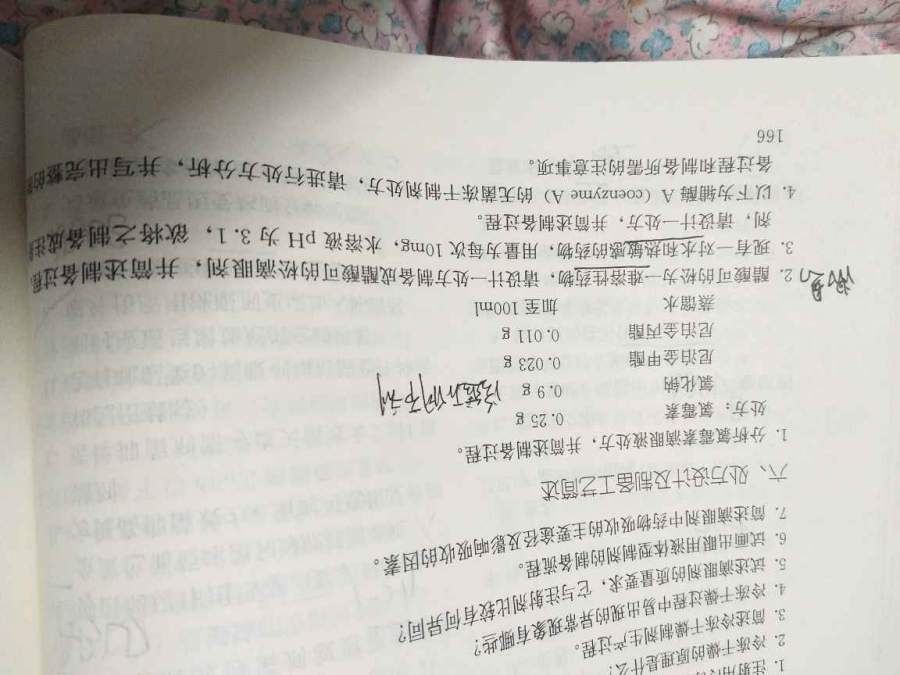 1. 注射用冷
2. 冷冻干燥的原理是什么?
3. 简述冷冻干燥制剂生产过程。
4. 冷冻干燥过程中易出现的异常现象有哪些?
5. 试述滴眼剂的质量要求，它与注射剂比较有何异同?
6. 试画出眼用液体型制剂的制备流程。
7. 简述滴眼剂中药物吸收的主要途径及影响吸收的因素。
六、处方设计及制备工艺简述
1. 分析氯霉素滴眼液处方，并简述制备过程。
处方，氯霉素 0.25 g
氯化钠 0.9 g
尼泊金甲酯 0.023 g
尼泊金丙酯 0.011 g
蒸馏水 加至 100ml
2. 醋酸可的松为一难溶性药物，请设计一处方制备成醋酸可的松滴眼剂，并简述制备过程
3. 现有一对水和热敏感的药物，用量为每次 10mg，水溶液 pH 为 3.1，欲将之制备成注
剂，请设计一处方，并简述制备过程。
4. 以下为辅酶 A (coenzyme A) 的无菌冻干制剂处方，请进行处方分析，并写出完整的
备过程和制备所需的注意事项。
166